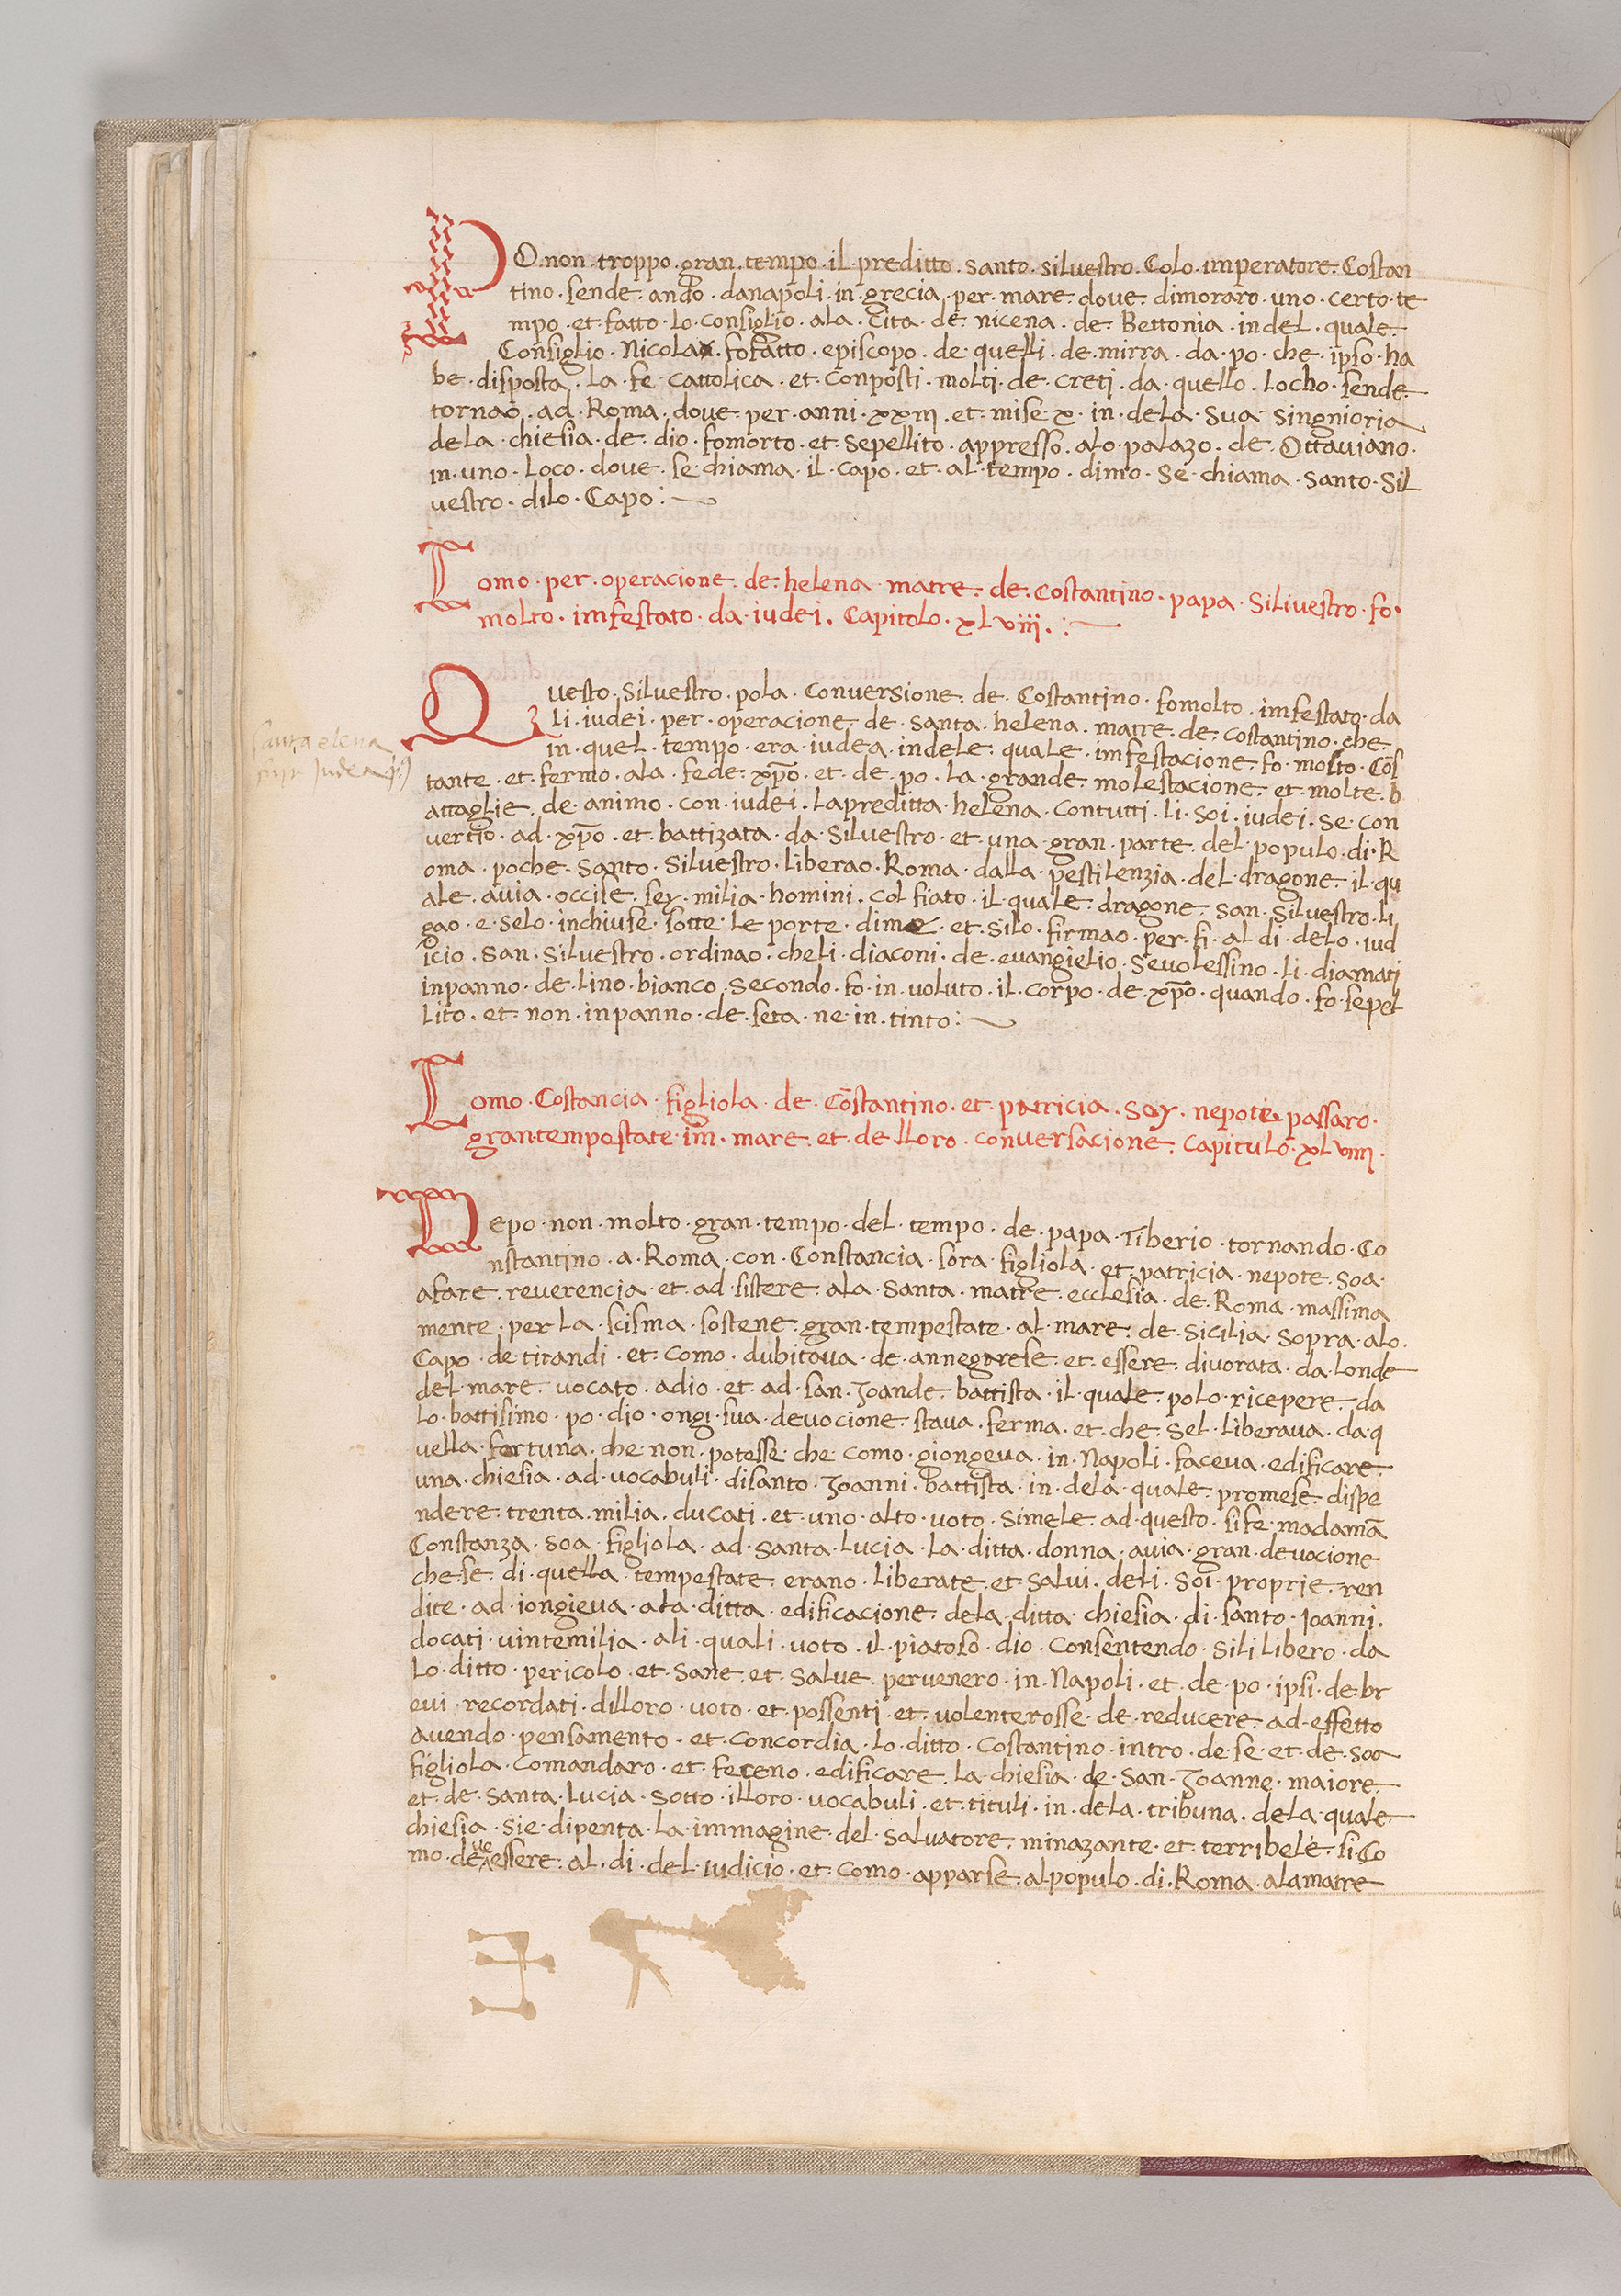 PO. non troppo. gran. tempo. il. preditto. santo. silvestro. Colo. imperatore. Costan
tino. sende. ando. da napoli. in. grecia. per. mare. dove. dimoraro. uno. certo. te
mpo. et. fatto. lo. consiglio. ala. cita. de. nicena. de. Bettonia. indel. quale.
Consiglio. Nicola. fo fatto. episcopo. de. quelli. de. mirra. da. po. che. ipso. ha
be. disposta. la. fe. cattolica. et. conposti. molti. de. creti. da. quello. locho. sende.
tornao. ad. Roma. dove. per. anni. xxiii. et. mise. x. in. dela. sua. singnioria
dela. chiesia. de. dio. fomorto. et. sepellito. appresso. alo. palazo. de. Ottaviano.
in. uno. loco. dove. se. chiama. il. capo. et. al. tempo. dimo. se. chiama. santo. Sil
vestro. dilo. Capo:
Como. per. operacione. de. helena. matre. de. Costantino. papa. Silivestro. fo.
molto. imfestato. da. iudei. Capitolo. xlviii.:
Questo. Silvestro. po la. Conversione. de. Costantino. fomolto. imfestato. da
li. iudei. per. operacione. de. santa. helena. matre. de. costantino. che.
santa elena
in. quel. tempo. era. iudea. indele. quale. imfestacione. fo. molto. Cōs
Judea
tante. et. fermo. ala. fede. xp̄o. et. de. po. la. grande. molestacione. et. molte. b
attaglie. de. animo. con. iudei. la preditta. helena. contutti. li. soi. iudei. se. con
vertio. ad. xp̄o. et. battizata. da. Silvestro. et. una. gran. parte. del. populo. di. R
oma. poche. santo. Silvestro. liberao. Roma. dalla. pestilenzia. del. dragone. il. qu
ale. avia. occise. sey. milia. homini. col fiato. il. quale. dragone. san. Silvestro. li
gao. e. selo. inchiuse. sotte. le porte. dime. et. silo. firmao. per. fi. al di. delo. iud
icio. San. Silvestro. ordinao. cheli. diaconi. de. evangielio. sevolessino. li. diamati
inpanno. de. lino. bianco. secondo. fo. in. voluto. il. corpo. de. xp̄o. quando. fo. sepel
lito. et. non. inpanno. de. seta. ne. in. tinto:
Como. Costancia. figliola. de. Cōstantino. et. patricia. soy. nepote. passaro.
gran. tempostate. im. mare. et. delloro. conversacione. capitulo. xlviiii.
Depo. non. molto. gran. tempo. del. tempo. de. papa. Tiberio. tornando. Co
nstantino. a. Roma. con. Constancia. sora. figliola. et. patricia. nepote. soa.
afare. reverencia. et. ad. sistere. ala. santa. matre. ecclesia. de. Roma. massima
mente. per la. scisma. sostene. gran. tempestate. al. mare. de. Sicilia. sopra. alo.
Capo. de. titandi. et. como. dubitava. de. annegarese. et. essere. divorata. da. londe
del. mare. vocato. adio. et. ad. san. Joande. battista. il. quale. po lo. ricepere. da
lo. battisimo. po. dio. ongi. sua. devocione. stava. ferma. et. che. sel. liberava. da. q
uella. fortuna. che non. potesse. che. como. giongeva. in. Napoli. faceva. edificare.
una. chiesia. ad. vocabuli. disanto. Joanni. battista. in. dela. quale. promese. dispe
ndere. trenta. milia. ducati. et. uno. alto. voto. simele. ad. questo. si fe. madamā
Constanza. soa. figliola. ad. santa. lucia. la. ditta. donna. avia. gran. devocione
che. se. di. quella. tempestate. erano. liberate. et. salvi. deli. soi. proprie. ren
dite. ad iongieva. ala. ditta. edificacione. dela. ditta. chiesia. di. santo. Joanni.
docati. vintemilia. ali. quali. voto. il. piatoso. dio. consentendo. sili libero. da
lo. ditto. pericolo. et. sane. et. salve. pervenero. in. Napoli. et. de. po. ipsi. de. br
evi. recordati. dilloro. voto. et. possenti. et. volenterosse. de. reducere. ad. effetto
avendo. pensamento. et. concordia. lo. ditto. costantino. intro. de. se. et. de. soa
figliola. comandaro. et. feceno. edificare. la. chiesia. de. san. Joanne. maiore.
et. de. santa. lucia. sotto. illoro. vocabuli. et. tituli. in. dela. tribuna. dela. quale.
chiesia. sie. dipenta. la. immagine. del. salvatore. minazante. et. terribele. si. Co
mo. deve essere. al. di. del. iudicio. et. como. apparse. al populo. di. Roma. ala matre